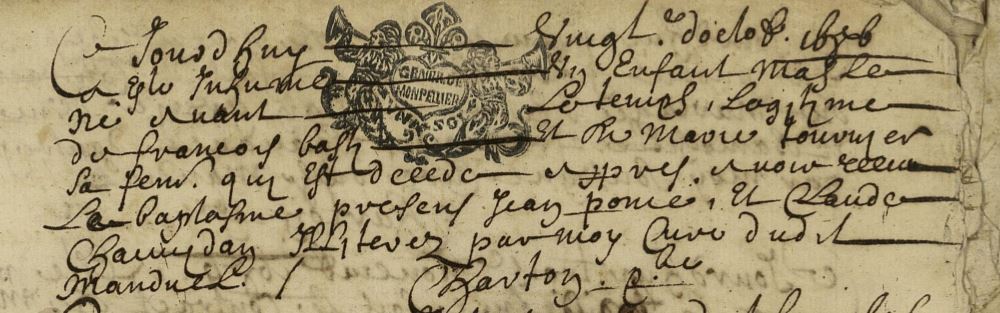 Ce Jourdhuy vingt.e doctob.e 1686
a esté Inhumé un Enfant masle
né avant Le temps, Legitime
de francois bast Et de Marie tournier
sa fem.e quy Est decede appres avoir receu
Le baptesme presens Jean ponce, Et Claude
Illiterez par moy Curé dudit
Manduel. / Charton
GENER. DE
MONPELLIER